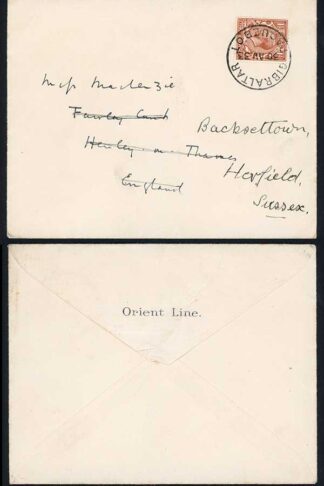 Miss MacKenzie
Fawley Court
Henley on Thames
England
Backsettown,
Henfield,
Sussex.
GIBRALTAR
Orient Line.